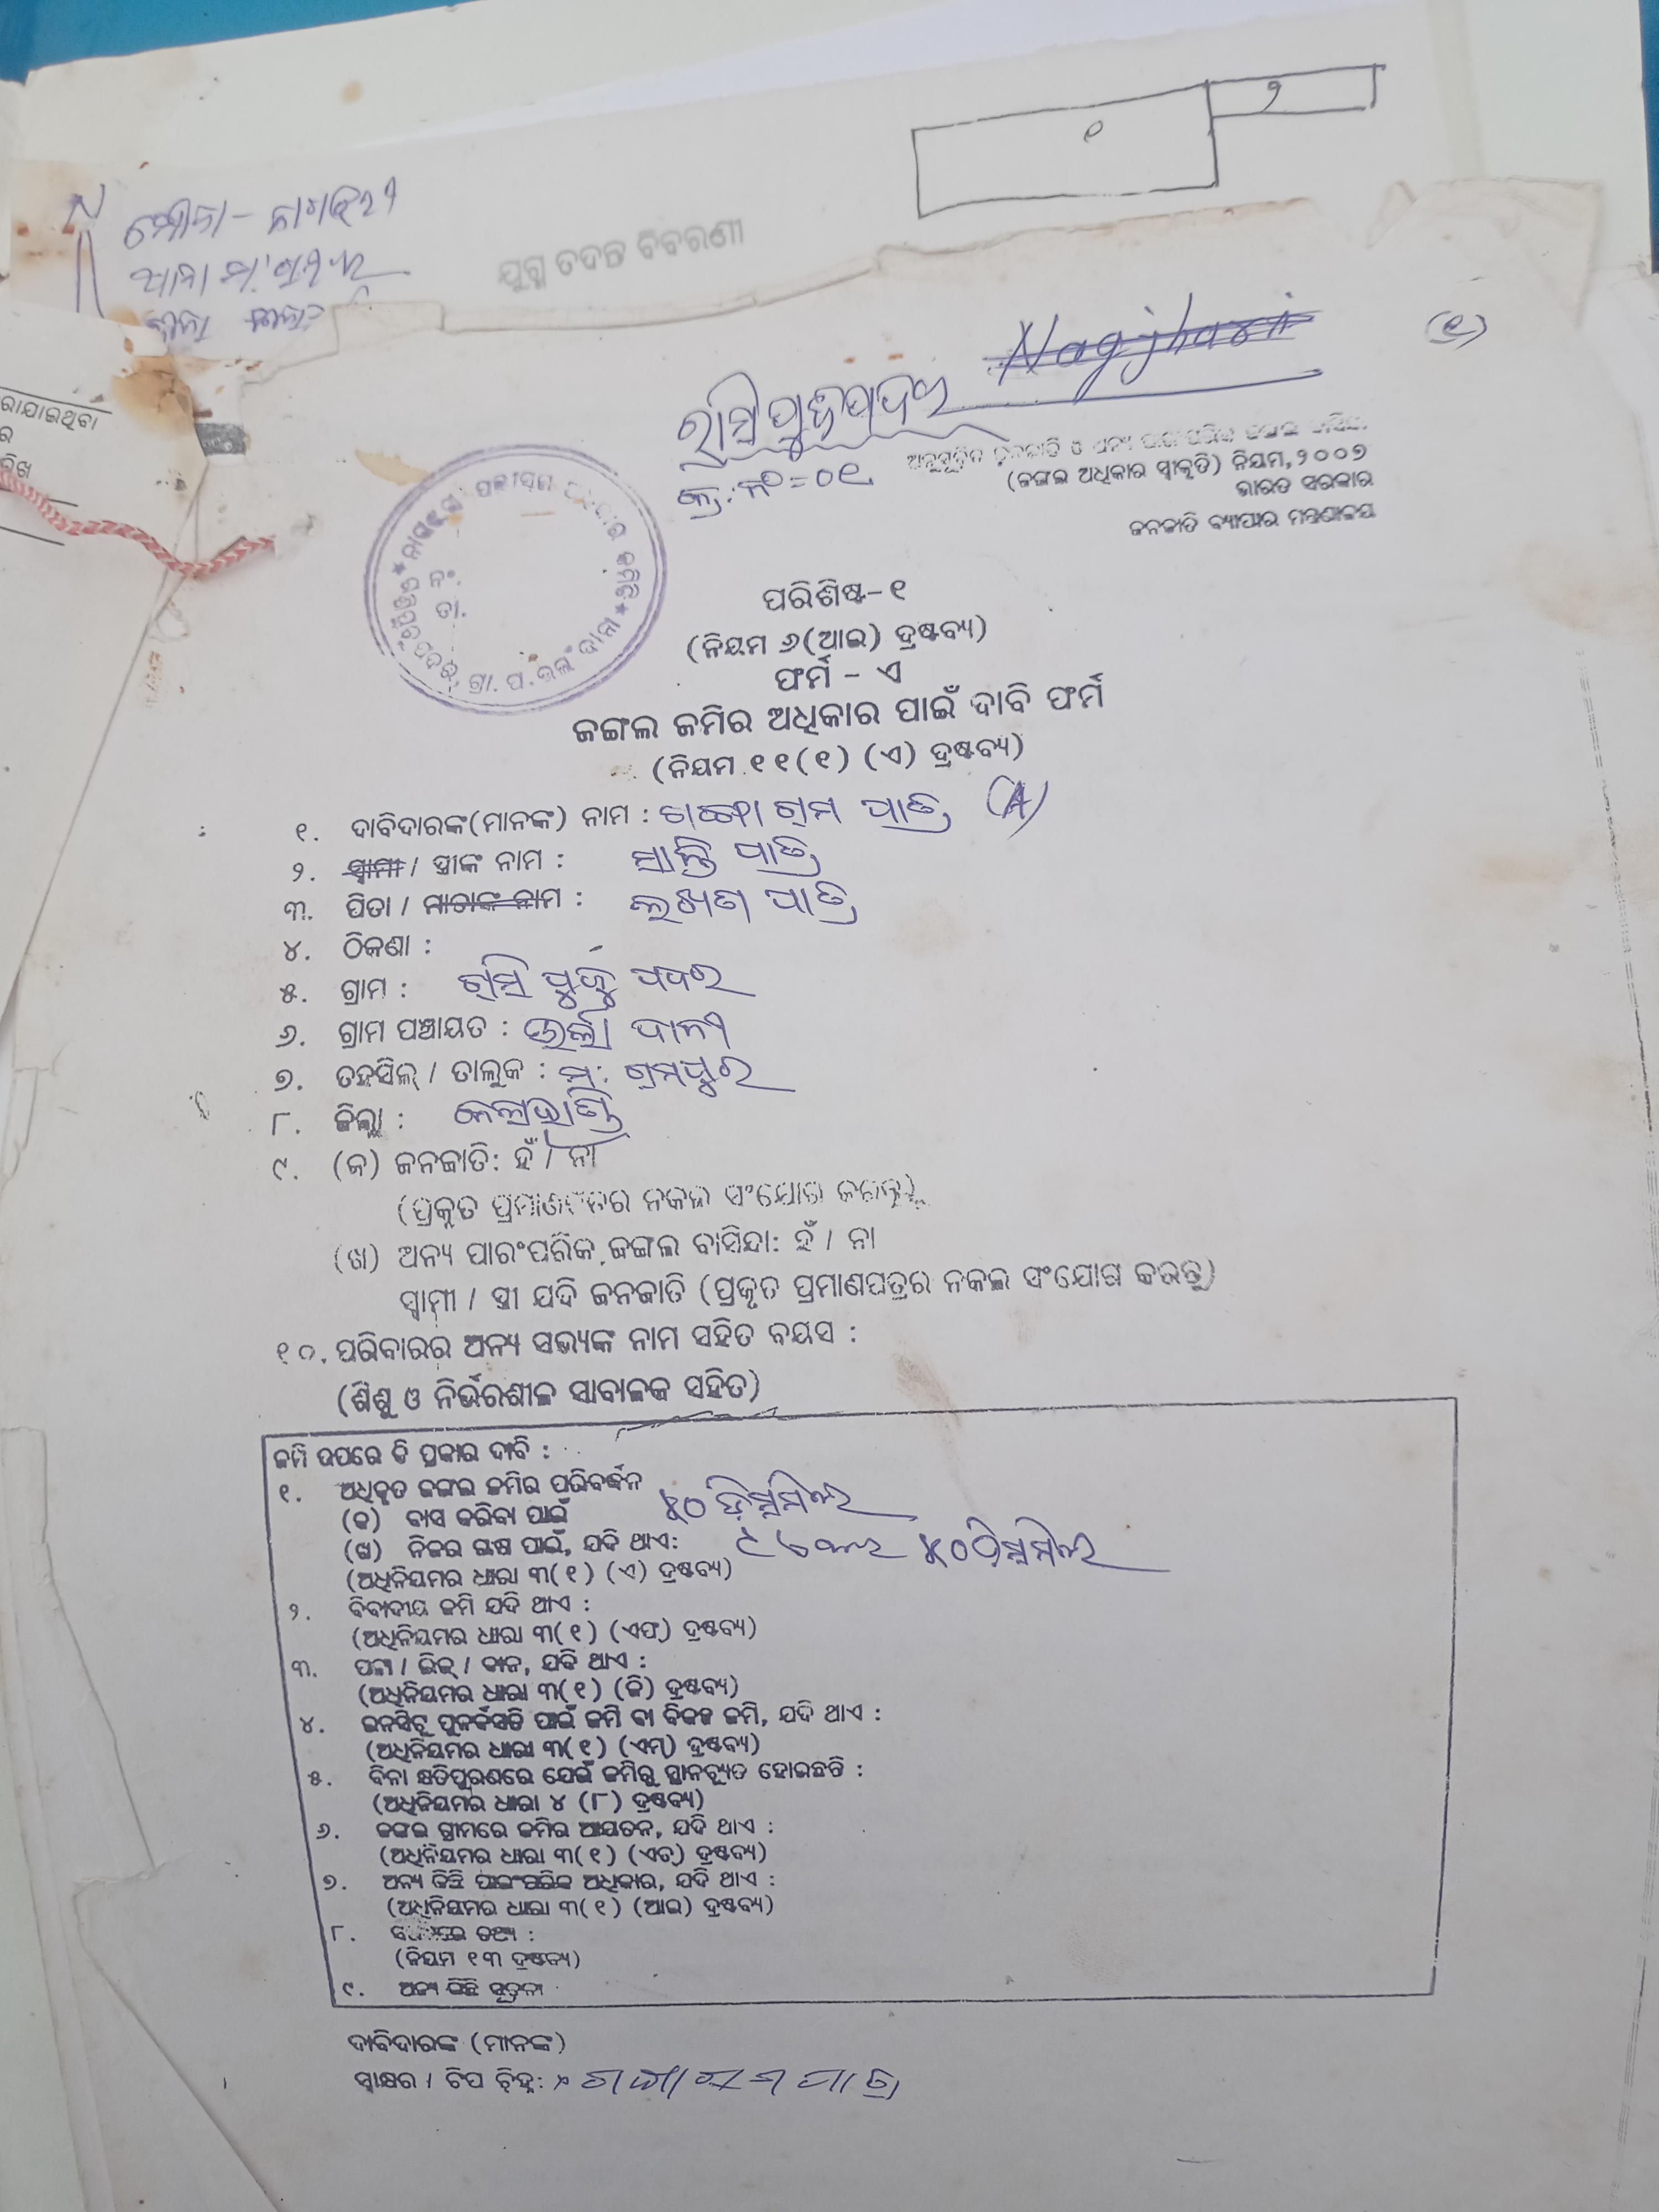 ୧
୨
ମୌଜା - ନାଗଝରୀ
ଯୁଗ୍ମ ତଦନ୍ତ ବିବରଣୀ
ରାଯାଇଥିବା
Nagjhari
(୧)
କ୍ର.ନଂ = ୦୧
(ଜଙ୍ଗଲ ଅଧିକାର ସ୍ୱୀକୃତି) ନିୟମ, ୨୦୦୭
ଭାରତ ସରକାର
ଜନଜାତି ବ୍ୟାପାର ମନ୍ତ୍ରଣାଳୟ
ନଂ.
ତା.
ପରିଶିଷ୍ଟ-୧
(ନିୟମ ୬(ଆଇ) ଦ୍ରଷ୍ଟବ୍ୟ)
ଫର୍ମ - ଏ
ଜଙ୍ଗଲ ଜମିର ଅଧିକାର ପାଇଁ ଦାବି ଫର୍ମ
(ନିୟମ ୧୧(୧) (ଏ) ଦ୍ରଷ୍ଟବ୍ୟ)
୧. ଦାବିଦାରଙ୍କ(ମାନଙ୍କ) ନାମ : ପାତ୍ର (A)
୨. ସ୍ୱାମୀ / ସ୍ତ୍ରୀଙ୍କ ନାମ : ପାତ୍ର
୩. ପିତା / ମାତାଙ୍କ ନାମ : ଲଖଣ ପାତ୍ର
୪. ଠିକଣା :
୫. ଗ୍ରାମ : ପଦର
୬. ଗ୍ରାମ ପଞ୍ଚାୟତ : ଉର୍ଲାଦାନୀ
୭. ତହସିଲ୍ / ତାଲୁକ : ମ: ରାମପୁର
୮. ଜିଲ୍ଲା : କଳାହାଣ୍ଡି
୯. (କ) ଜନଜାତି: ହଁ / ନା
(ପ୍ରକୃତ ପ୍ରମାଣପତ୍ରର ନକଲ ସଂଯୋଗ କରନ୍ତୁ)
(ଖ) ଅନ୍ୟ ପାରଂପରିକ ଜଙ୍ଗଲ ବାସିନ୍ଦା: ହଁ / ନା
ସ୍ୱାମୀ / ସ୍ତ୍ରୀ ଯଦି ଜନଜାତି (ପ୍ରକୃତ ପ୍ରମାଣପତ୍ରର ନକଲ ସଂଯୋଗ କରନ୍ତୁ)
୧୦. ପରିବାରର ଅନ୍ୟ ସଭ୍ୟଙ୍କ ନାମ ସହିତ ବୟସ :
(ଶିଶୁ ଓ ନିର୍ଭରଶୀଳ ସାବାଳକ ସହିତ)
ଜମି ଉପରେ କି ପ୍ରକାର ଦାବି :
୧. ଅଧିକୃତ ଜଙ୍ଗଲ ଜମିର ପରିବର୍ଦ୍ଧନ
(କ) ବାସ କରିବା ପାଇଁ ୫୦ ଡିସମିଲ
(ଖ) ନିଜର ଚାଷ ପାଇଁ, ଯଦି ଥାଏ: ୫୦ ଡିସମିଲ
(ଅଧିନିୟମର ଧାରା ୩(୧) (ଏ) ଦ୍ରଷ୍ଟବ୍ୟ)
୨. ବିବାଦୀୟ ଜମି ଯଦି ଥାଏ :
(ଅଧିନିୟମର ଧାରା ୩(୧) (ଏଫ୍) ଦ୍ରଷ୍ଟବ୍ୟ)
୩. ପଟ୍ଟା / ଲିଜ୍ / ଦାନ, ଯଦି ଥାଏ :
(ଅଧିନିୟମର ଧାରା ୩(୧) (ଜି) ଦ୍ରଷ୍ଟବ୍ୟ)
୪. ଇନସିଟୁ ପୁନର୍ବସତି ପାଇଁ ଜମି ବା ବିକଳ୍ପ ଜମି, ଯଦି ଥାଏ :
(ଅଧିନିୟମର ଧାରା ୩(୧) (ଏମ୍) ଦ୍ରଷ୍ଟବ୍ୟ)
୫. ବିନା କ୍ଷତିପୂରଣରେ ଯେଉଁ ଜମିରୁ ସ୍ଥାନଚ୍ୟୁତ ହୋଇଛନ୍ତି :
(ଅଧିନିୟମର ଧାରା ୪ (୮) ଦ୍ରଷ୍ଟବ୍ୟ)
୬. ଜଙ୍ଗଲ ଗ୍ରାମରେ ଜମିର ଆୟତନ, ଯଦି ଥାଏ :
(ଅଧିନିୟମର ଧାରା ୩(୧) (ଏଚ୍) ଦ୍ରଷ୍ଟବ୍ୟ)
୭. ଅନ୍ୟ କିଛି ପାରଂପରିକ ଅଧିକାର, ଯଦି ଥାଏ :
(ଅଧିନିୟମର ଧାରା ୩(୧) (ଆଇ) ଦ୍ରଷ୍ଟବ୍ୟ)
୮. ତଥ୍ୟ :
(ନିୟମ ୧୩ ଦ୍ରଷ୍ଟବ୍ୟ)
୯. ଅନ୍ୟ କିଛି ସୂଚନା
ଦାବିଦାରଙ୍କ (ମାନଙ୍କ)
ସ୍ୱାକ୍ଷର / ଟିପ ଚିହ୍ନ: ପାତ୍ର